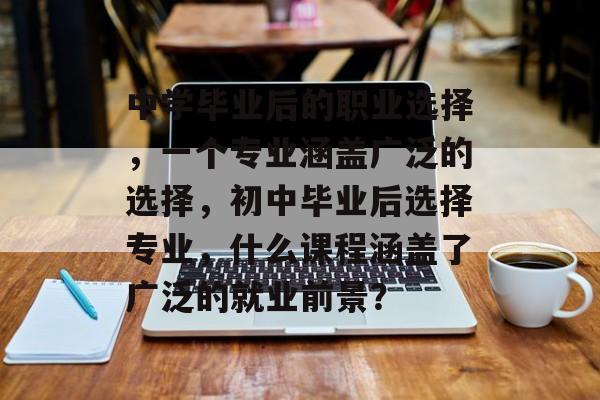 中学毕业后的职业选择
，一个专业涵盖广泛的
选择，初中毕业后选择
专业，什么课程涵盖了
广泛的就业前景？